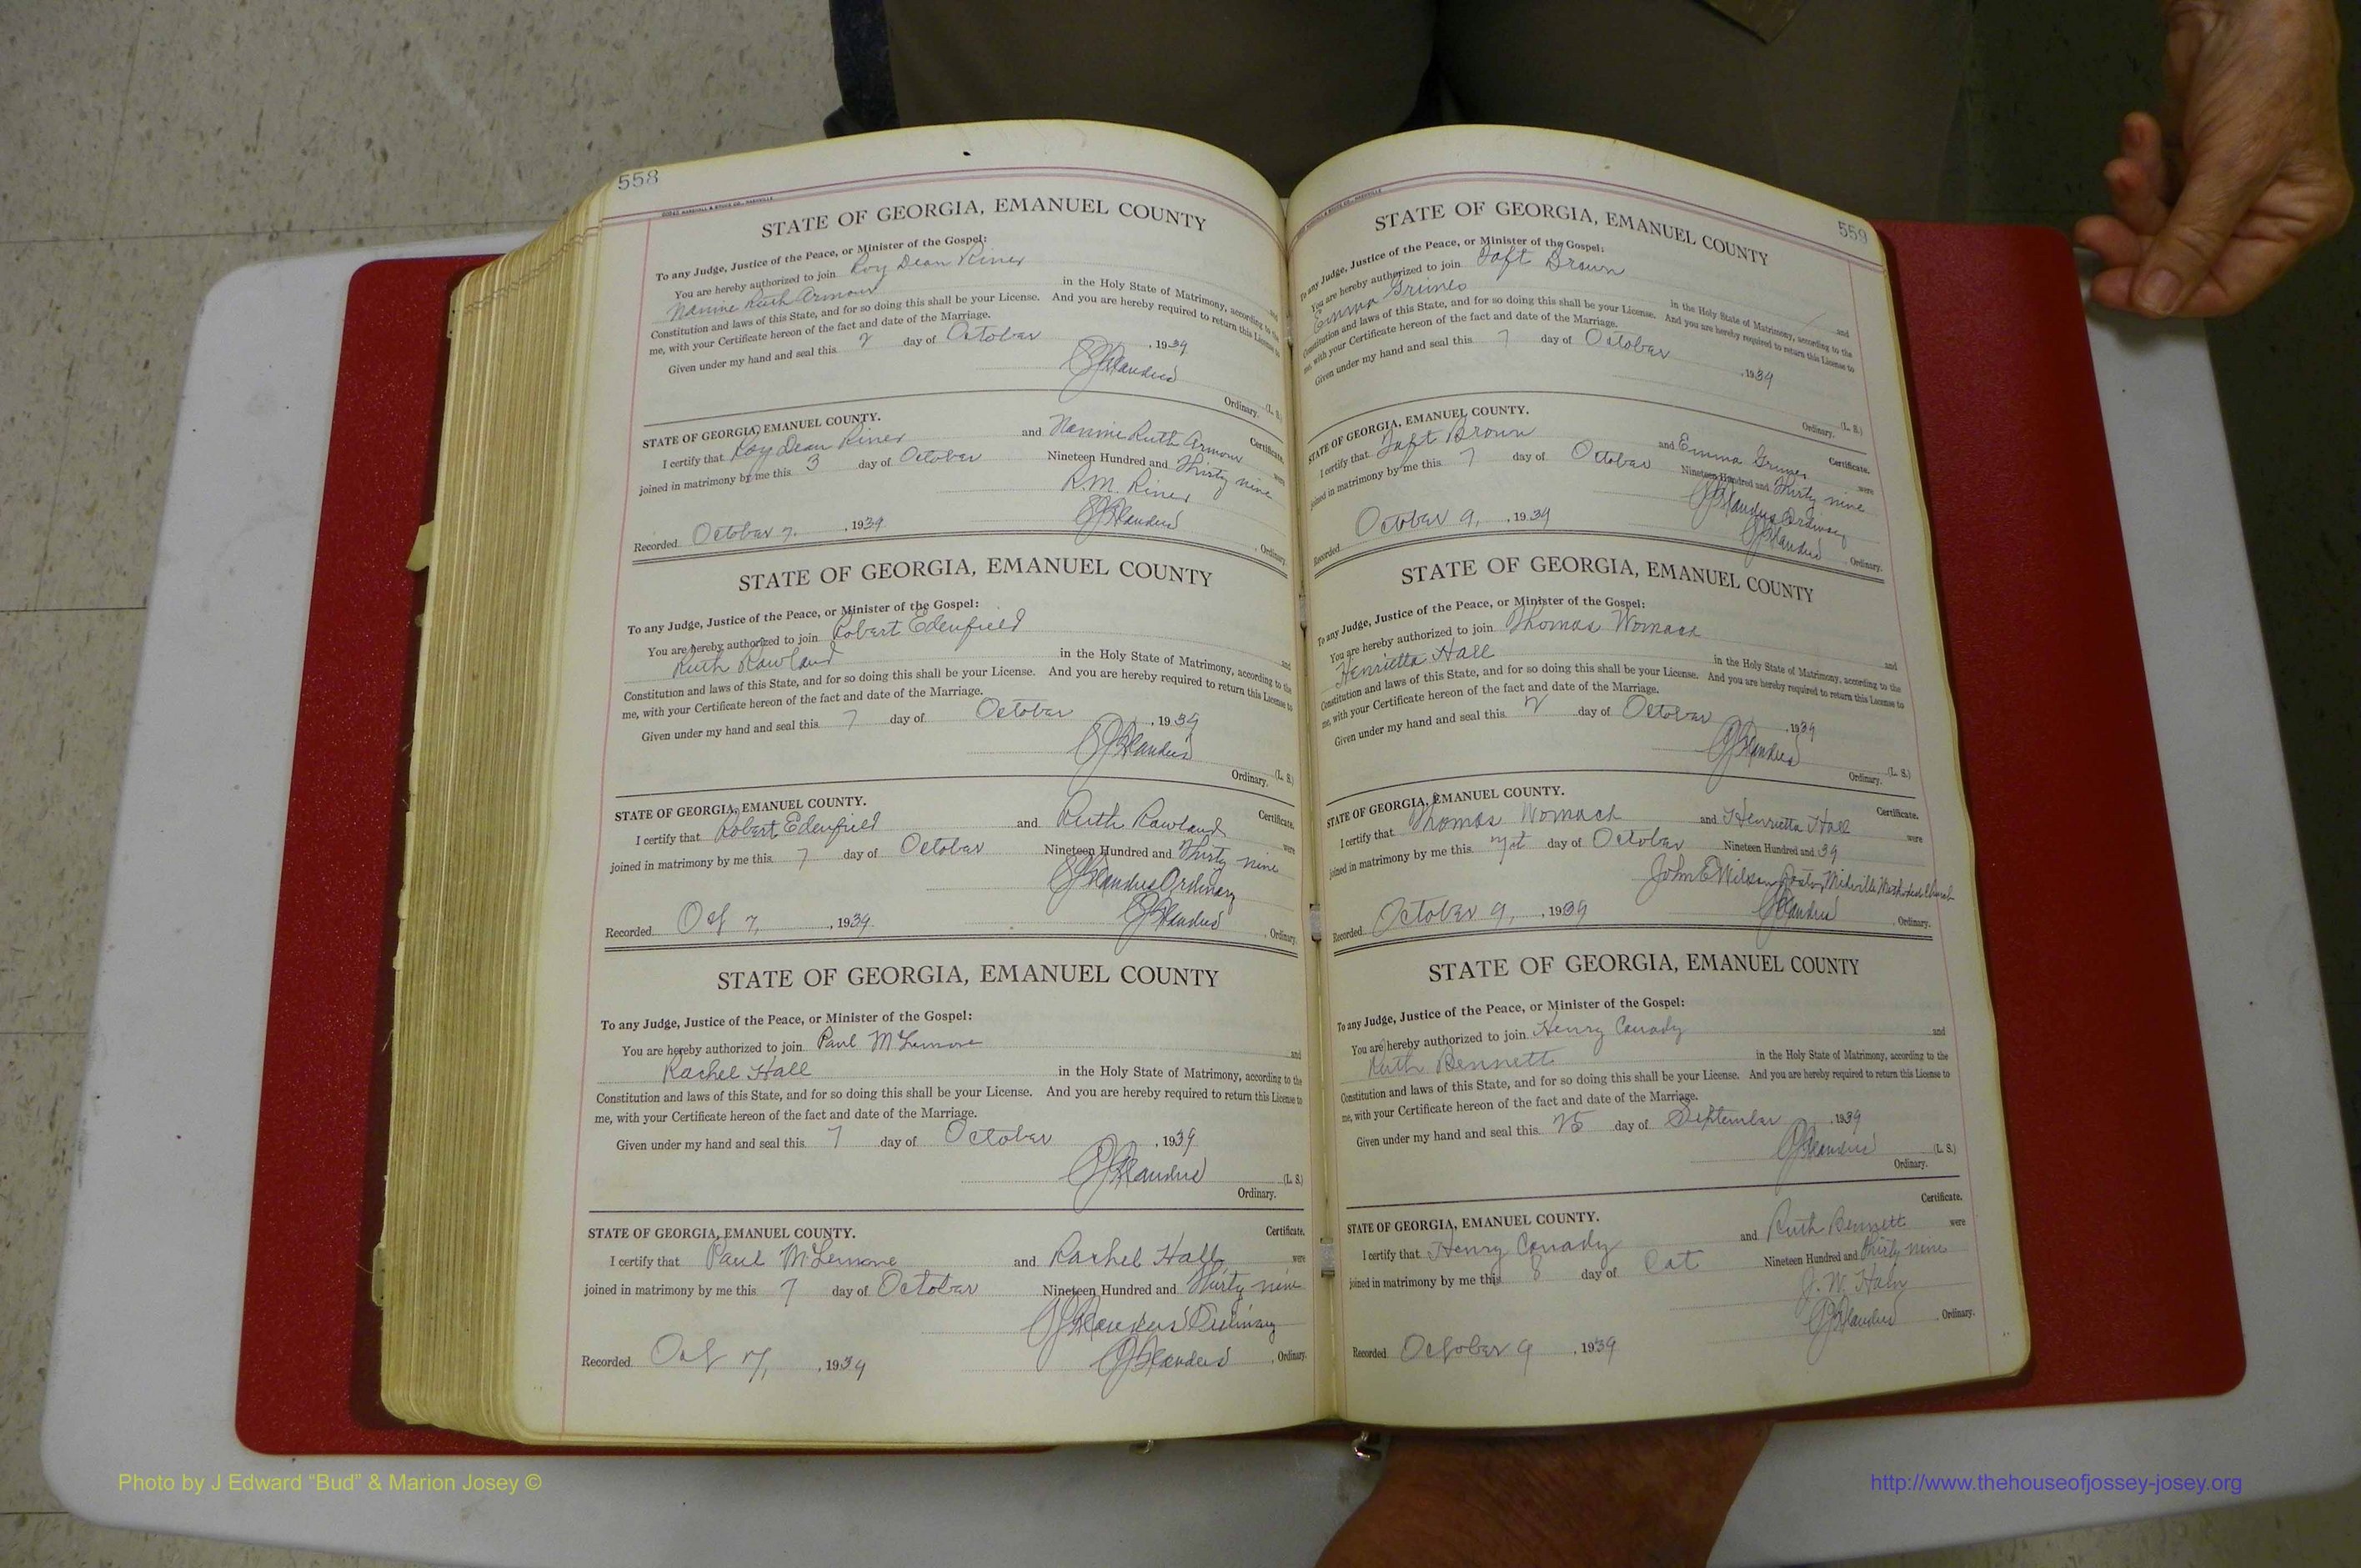 558
STATE OF GEORGIA, EMANUEL COUNTY
To any Judge, Justice of the Peace, or Minister of the Gospel:
You are hereby authorized to join Roy Dean Riner and
Nannie Ruth Armour in the Holy State of Matrimony, according to the
Constitution and laws of this State, and for so doing this shall be your License. And you are hereby required to return this License to
me, with your Certificate hereon of the fact and date of the Marriage.
Given under my hand and seal this 2 day of October, 1939
(L. S.)
Ordinary.
STATE OF GEORGIA, EMANUEL COUNTY. Certificate.
I certify that Roy Dean Riner and Nannie Ruth Armour were
joined in matrimony by me this 3 day of October Nineteen Hundred and Thirty nine
R.M. Riner
Recorded October 7, 1939, Ordinary.
STATE OF GEORGIA, EMANUEL COUNTY
To any Judge, Justice of the Peace, or Minister of the Gospel:
You are hereby authorized to join Robert Edenfield and
Ruth Rawland in the Holy State of Matrimony, according to the
Constitution and laws of this State, and for so doing this shall be your License. And you are hereby required to return this License to
me, with your Certificate hereon of the fact and date of the Marriage.
Given under my hand and seal this 7 day of October, 1939
(L. S.)
Ordinary.
STATE OF GEORGIA, EMANUEL COUNTY. Certificate.
I certify that Robert Edenfield and Ruth Rawland were
joined in matrimony by me this 7 day of October Nineteen Hundred and Thirty nine
Ordinary
Recorded Oct 7, 1939, Ordinary.
STATE OF GEORGIA, EMANUEL COUNTY
To any Judge, Justice of the Peace, or Minister of the Gospel:
You are hereby authorized to join Paul McLemore and
Rachel Hall in the Holy State of Matrimony, according to the
Constitution and laws of this State, and for so doing this shall be your License. And you are hereby required to return this License to
me, with your Certificate hereon of the fact and date of the Marriage.
Given under my hand and seal this 7 day of October, 1939
(L. S.)
Ordinary.
STATE OF GEORGIA, EMANUEL COUNTY. Certificate.
I certify that Paul McLemore and Rachel Hall were
joined in matrimony by me this 7 day of October Nineteen Hundred and Thirty nine
Ordinary
Recorded Oct 7, 1939, Ordinary.
559
STATE OF GEORGIA, EMANUEL COUNTY
To any Judge, Justice of the Peace, or Minister of the Gospel:
You are hereby authorized to join Taft Brown and
Emma Grines in the Holy State of Matrimony, according to the
Constitution and laws of this State, and for so doing this shall be your License. And you are hereby required to return this License to
me, with your Certificate hereon of the fact and date of the Marriage.
Given under my hand and seal this 7 day of October, 1939
(L. S.)
Ordinary.
STATE OF GEORGIA, EMANUEL COUNTY. Certificate.
I certify that Taft Brown and Emma Grines were
joined in matrimony by me this 7 day of October Nineteen Hundred and Thirty nine
Ordinary
Recorded October 9, 1939, Ordinary.
STATE OF GEORGIA, EMANUEL COUNTY
To any Judge, Justice of the Peace, or Minister of the Gospel:
You are hereby authorized to join Thomas Womack and
Henrietta Hall in the Holy State of Matrimony, according to the
Constitution and laws of this State, and for so doing this shall be your License. And you are hereby required to return this License to
me, with your Certificate hereon of the fact and date of the Marriage.
Given under my hand and seal this 2 day of October, 1939
(L. S.)
Ordinary.
STATE OF GEORGIA, EMANUEL COUNTY. Certificate.
I certify that Thomas Womack and Henrietta Hall were
joined in matrimony by me this day of October Nineteen Hundred and 39
John E Wilson, Pastor, Midville Methodist Church
Recorded October 9, 1939, Ordinary.
STATE OF GEORGIA, EMANUEL COUNTY
To any Judge, Justice of the Peace, or Minister of the Gospel:
You are hereby authorized to join Henry Canady and
Ruth Bennett in the Holy State of Matrimony, according to the
Constitution and laws of this State, and for so doing this shall be your License. And you are hereby required to return this License to
me, with your Certificate hereon of the fact and date of the Marriage.
Given under my hand and seal this 25 day of September, 1939
(L. S.)
Ordinary.
STATE OF GEORGIA, EMANUEL COUNTY. Certificate.
I certify that Henry Canady and Ruth Bennett were
joined in matrimony by me this 8 day of Oct Nineteen Hundred and Thirty nine
J. W.
Recorded October 9, 1939, Ordinary.
Photo by J Edward “Bud” & Marion Josey ©
http://www.thehouseofjossey-josey.org